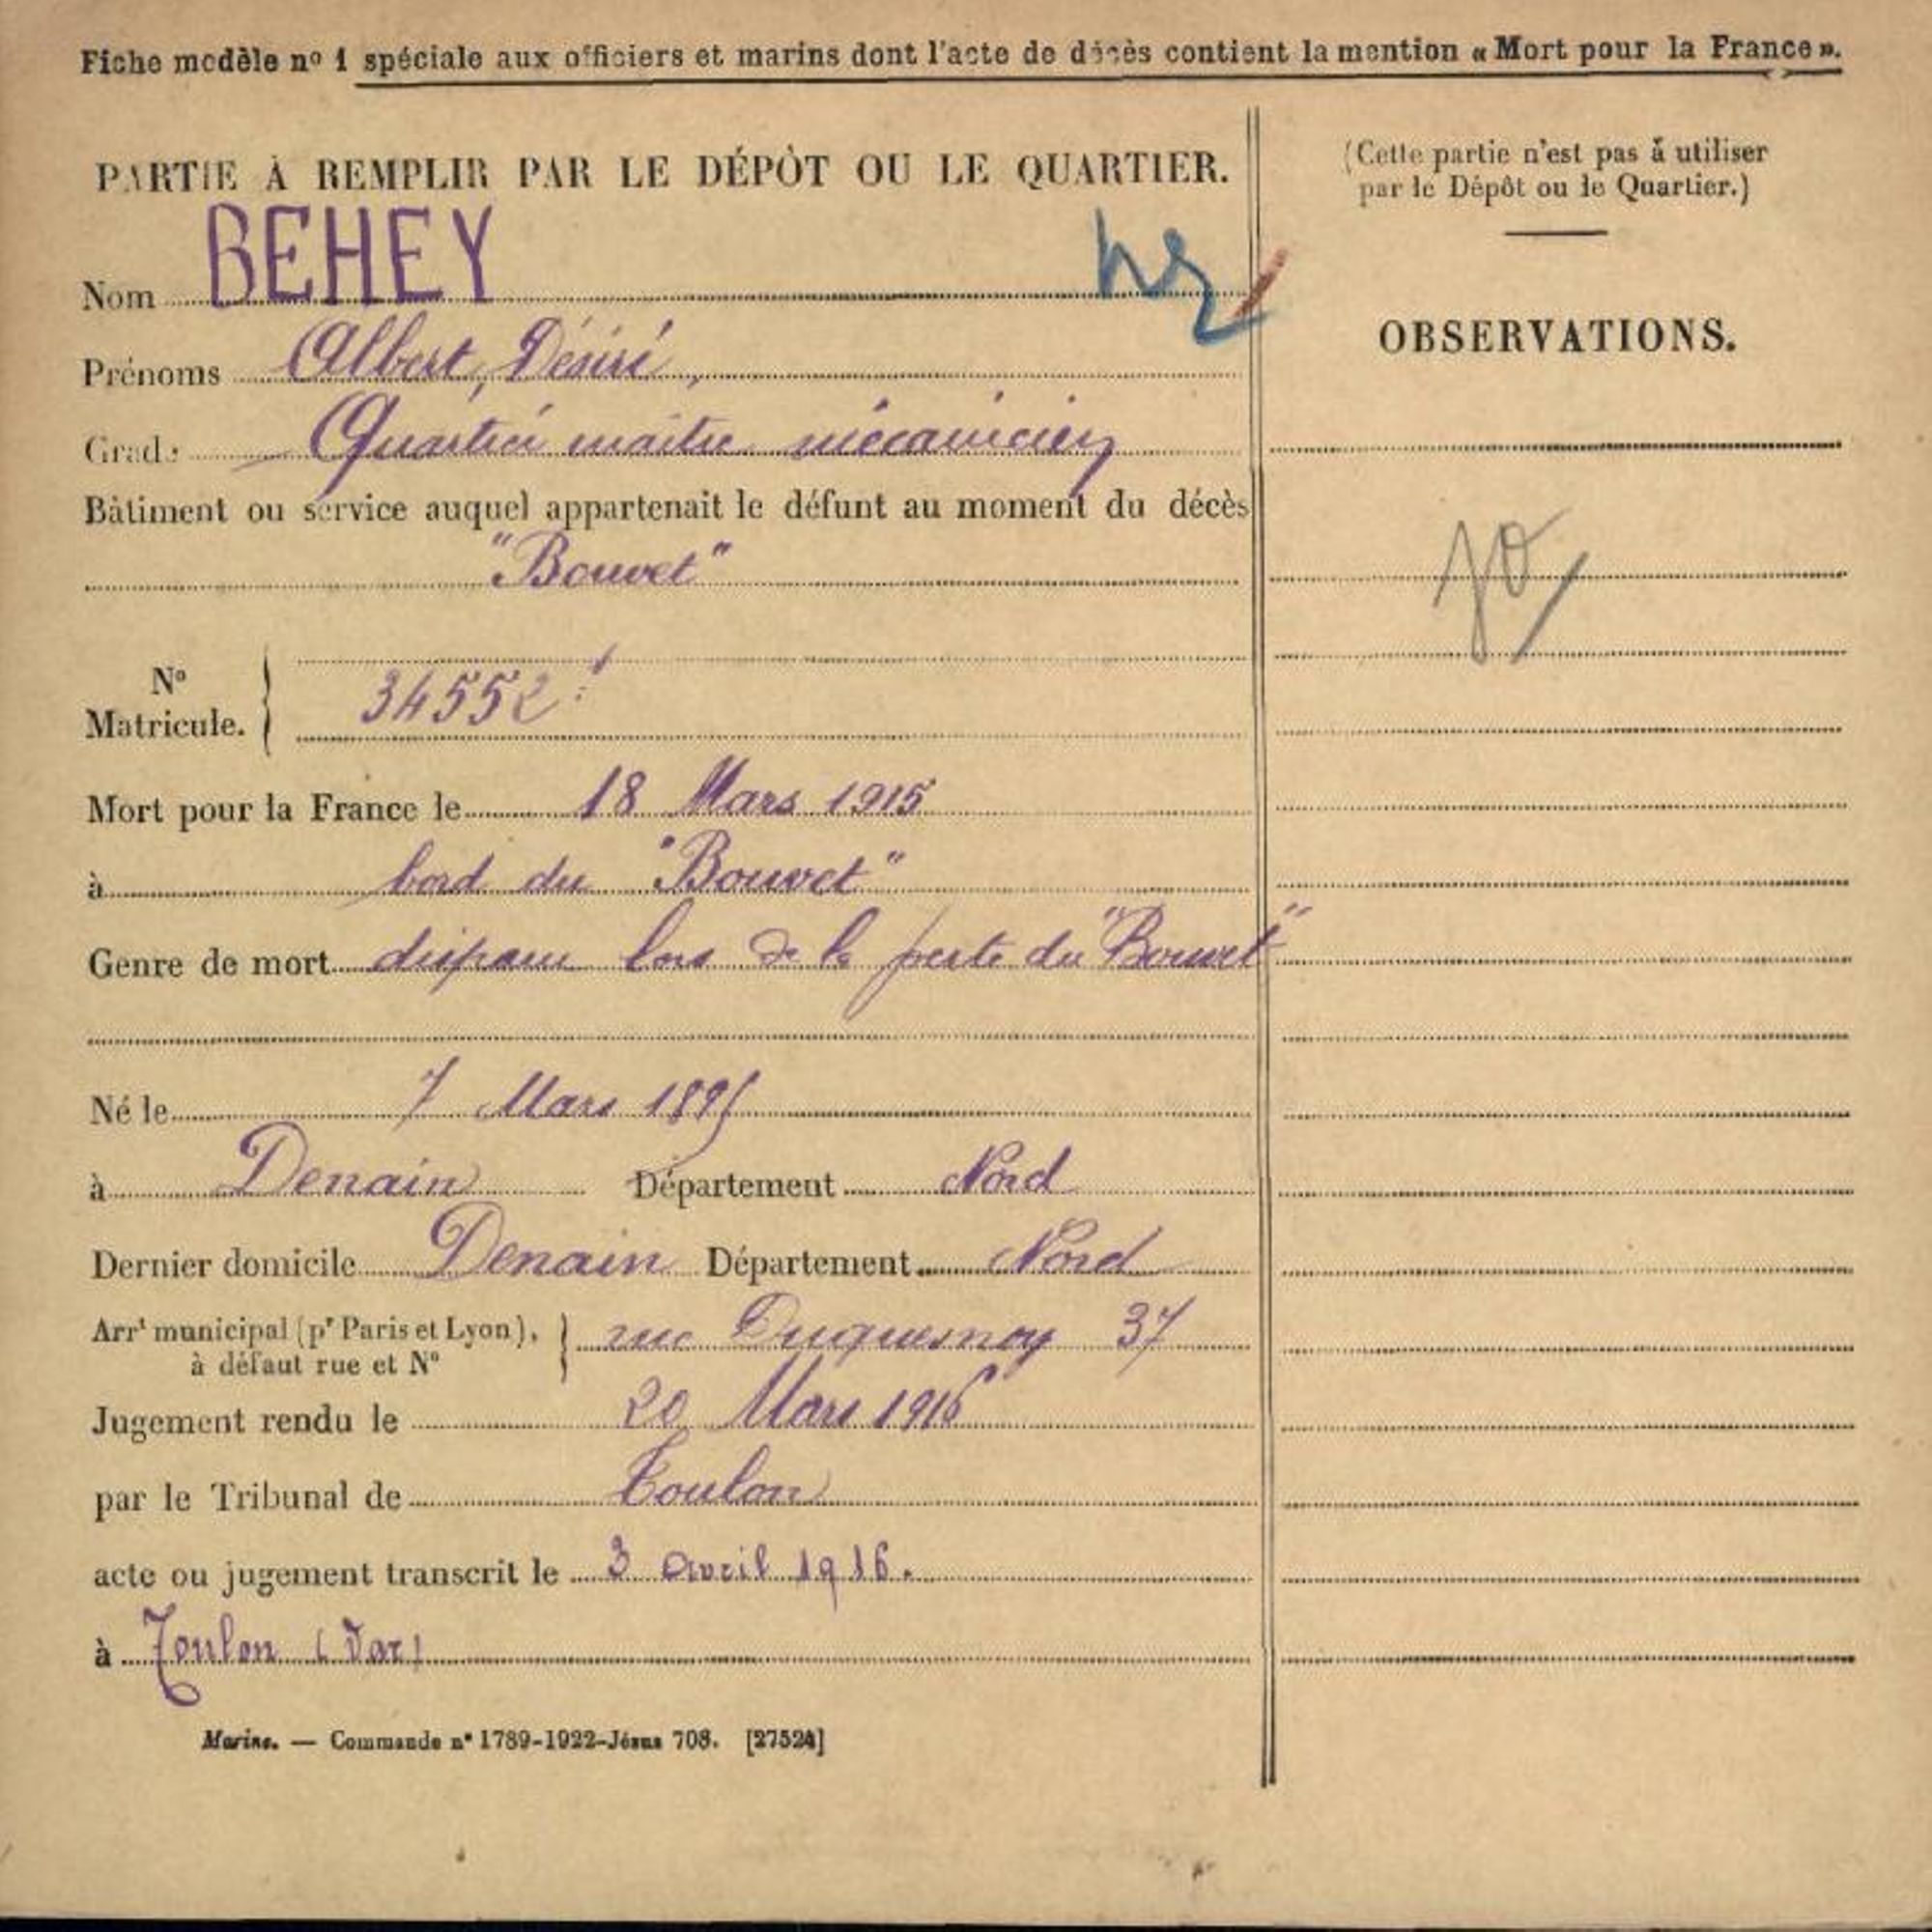 Fiche modèle nº 1 spéciale aux officiers et marins dont l'acte de décès contient la mention « Mort pour la France ».
PARTIE À REMPLIR PAR LE DÉPÔT OU LE QUARTIER.
(Cette partie n'est pas à utiliser
par le Dépôt ou le Quartier.)
Nom BEHEY
OBSERVATIONS.
Prénoms Albert, Désiré,
Grade Quartier maître mécanicien
Bâtiment ou service auquel appartenait le défunt au moment du décès
"Bouvet"
Nº
Matricule. } 34552
Mort pour la France le 18 Mars 1915
à bord du "Bouvet"
Genre de mort disparu lors de la perte du "Bouvet"
Né le 7 Mars 1895
à Denain Département Nord
Dernier domicile Denain Département Nord
Arrt municipal (pr Paris et Lyon),
à défaut rue et Nº } rue Duquesnoy 37
Jugement rendu le 20 Mars 1916
par le Tribunal de Toulon
acte ou jugement transcrit le 3 Avril 1916.
à Toulon (Var)
Marine. — Commande nº 1789-1922-Jésus 708. [27524]